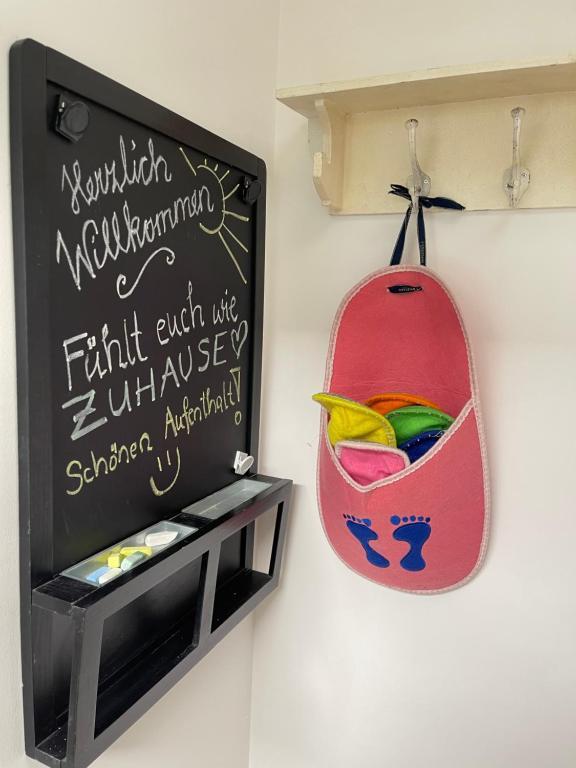 Herzlich
Willkommen
Fühlt euch wie
ZUHAUSE
Schönen Aufenthalt!